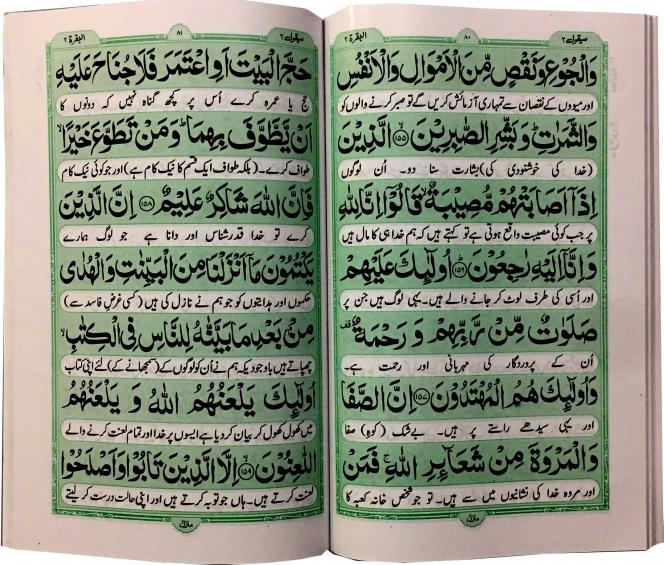 سیقول ٢
٨٠
البقرة ٢
وَالْجُوْعِ وَنَقْصٍ مِّنَ الْاَمْوَالِ وَالْاَنْفُسِ
اور میووں کے نقصان سے تمہاری آزمائش کریں گے تو صبر کرنے والوں کو
وَالثَّمَرٰتِ وَبَشِّرِ الصّٰبِرِيْنَ ﴿١٥٥﴾ الَّذِيْنَ
(خدا کی خوشنودی کی) بشارت سنا دو۔ اُن لوگوں
اِذَآ اَصَابَتْهُمْ مُّصِيْبَةٌ قَالُوْٓا اِنَّا لِلّٰهِ
پر جب کوئی مصیبت واقع ہوتی ہے تو کہتے ہیں کہ ہم خدا ہی کا مال ہیں
وَاِنَّآ اِلَيْهِ رٰجِعُوْنَ ﴿١٥٦﴾ اُولٰٓئِكَ عَلَيْهِمْ
اور اُسی کی طرف لوٹ کر جانے والے ہیں۔ یہی لوگ ہیں جن پر
صَلَوٰتٌ مِّنْ رَّبِّهِمْ وَ رَحْمَةٌ
اُن کے پروردگار کی مہربانی اور رحمت ہے۔
وَاُولٰٓئِكَ هُمُ الْمُهْتَدُوْنَ ﴿١٥٧﴾ اِنَّ الصَّفَا
اور یہی سیدھے راستے پر ہیں۔ بےشک (کوہِ) صفا
وَالْمَرْوَةَ مِنْ شَعَآئِرِ اللّٰهِ فَمَنْ
اور مروہ خدا کی نشانیوں میں سے ہیں۔ تو جو شخص خانہ کعبہ کا
سیقول ٢
٨١
البقرة ٢
حَجَّ الْبَيْتَ اَوِ اعْتَمَرَ فَلَا جُنَاحَ عَلَيْهِ
حج یا عمرہ کرے اُس پر کچھ گناہ نہیں کہ دونوں کا
اَنْ يَّطَّوَّفَ بِهِمَا وَمَنْ تَطَوَّعَ خَيْرًا
طواف کرے۔ (بلکہ طواف ایک قسم کا نیک کام ہے) اور جو کوئی نیک کام
فَاِنَّ اللّٰهَ شَاكِرٌ عَلِيْمٌ ﴿١٥٨﴾ اِنَّ الَّذِيْنَ
کرے تو خدا قدر شناس اور دانا ہے جو لوگ ہمارے
يَكْتُمُوْنَ مَآ اَنْزَلْنَا مِنَ الْبَيِّنٰتِ وَالْهُدٰى
حکموں اور ہدایتوں کو جو ہم نے نازل کی ہیں (کسی غرضِ فاسد سے)
مِنْۢ بَعْدِ مَا بَيَّنّٰهُ لِلنَّاسِ فِى الْكِتٰبِ
چھپاتے ہیں باوجودیکہ ہم نے اُن کو لوگوں کے (سمجھانے کے) لئے اپنی کتاب
اُولٰٓئِكَ يَلْعَنُهُمُ اللّٰهُ وَ يَلْعَنُهُمُ
میں کھول کھول کر بیان کر دیا ہے ایسوں پر خدا اور تمام لعنت کرنے والے
اللّٰعِنُوْنَ ﴿١٥٩﴾ اِلَّا الَّذِيْنَ تَابُوْا وَاَصْلَحُوْا
لعنت کرتے ہیں۔ ہاں جو توبہ کرتے ہیں اور اپنی حالت درست کر لیتے